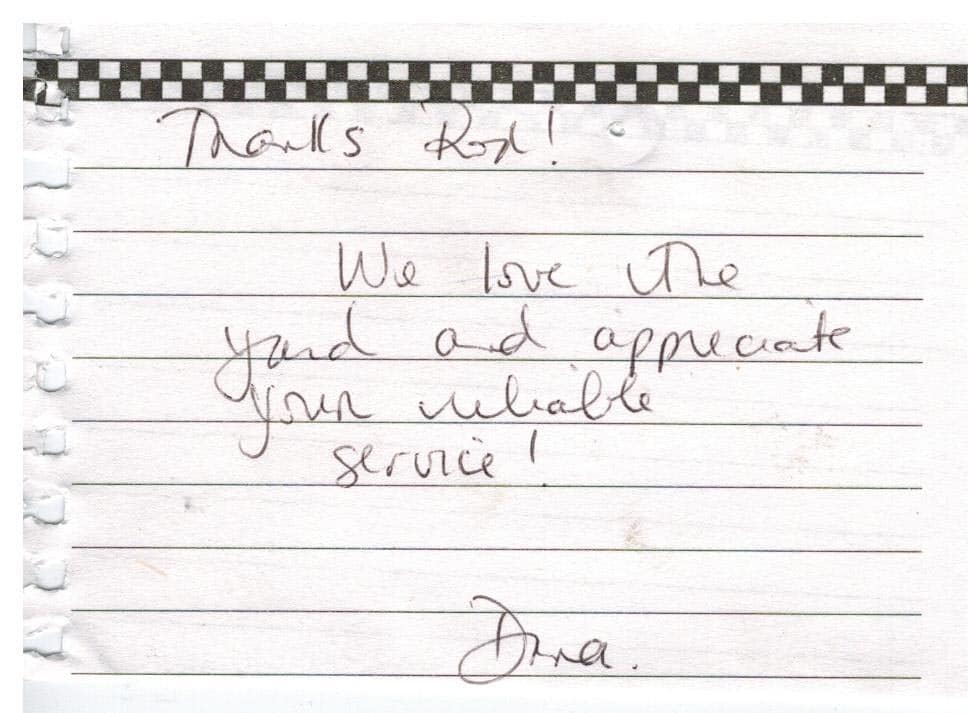 Thanks Rod!
We love the
yard and appreciate
your reliable
service!
Dana.